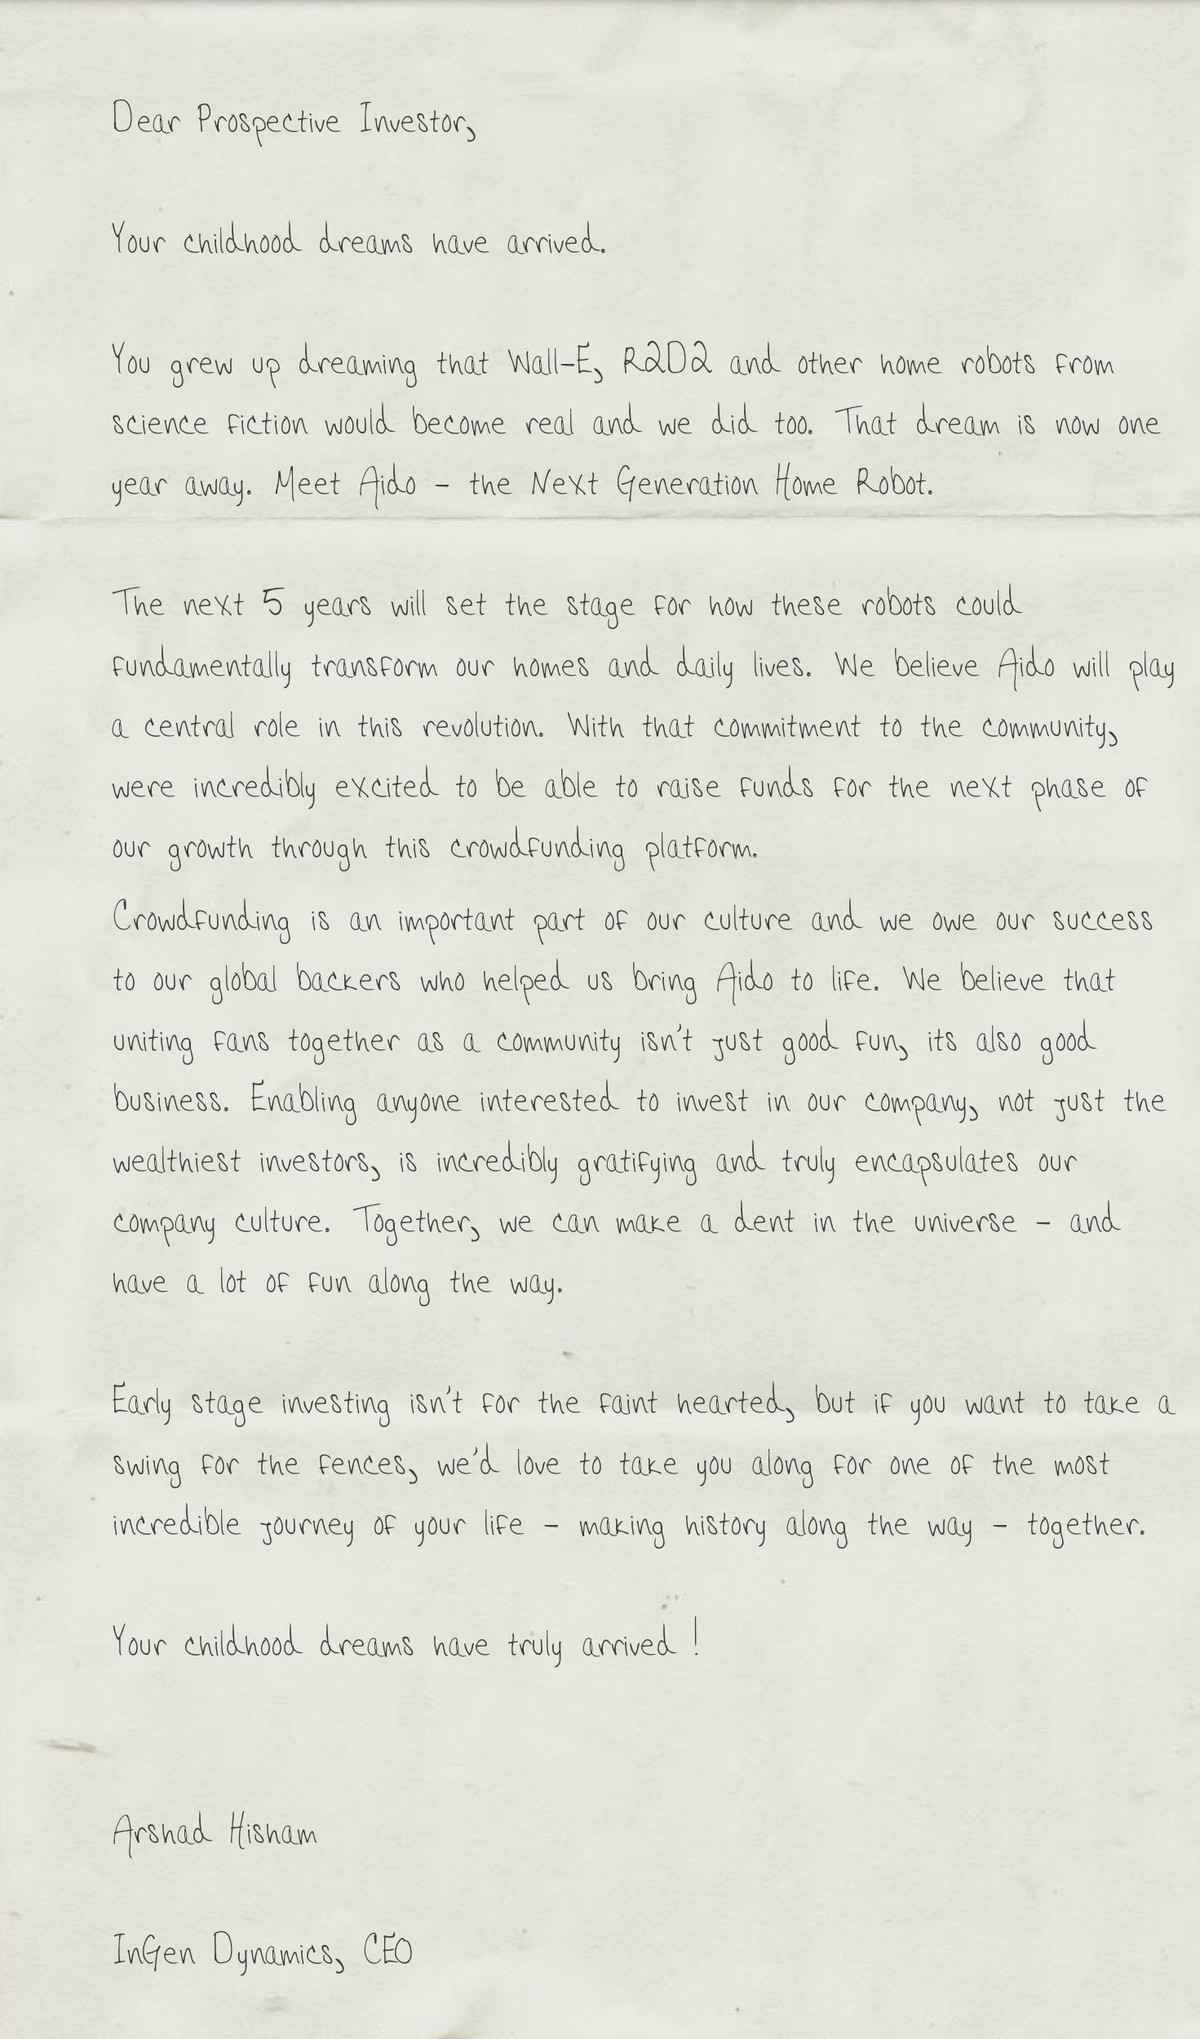 Dear Prospective Investor,
Your childhood dreams have arrived.
You grew up dreaming that Wall-E, R2D2 and other home robots from
science fiction would become real and we did too. That dream is now one
year away. Meet Aido - the Next Generation Home Robot.
The next 5 years will set the stage for how these robots could
fundamentally transform our homes and daily lives. We believe Aido will play
a central role in this revolution. With that commitment to the community,
were incredibly excited to be able to raise funds for the next phase of
our growth through this crowdfunding platform.
Crowdfunding is an important part of our culture and we owe our success
to our global backers who helped us bring Aido to life. We believe that
uniting fans together as a community isn't just good fun, its also good
business. Enabling anyone interested to invest in our company, not just the
wealthiest investors, is incredibly gratifying and truly encapsulates our
company culture. Together, we can make a dent in the universe - and
have a lot of fun along the way.
Early stage investing isn't for the faint hearted, but if you want to take a
swing for the fences, we'd love to take you along for one of the most
incredible journey of your life - making history along the way - together.
Your childhood dreams have truly arrived !
Arshad Hisham
InGen Dynamics, CEO